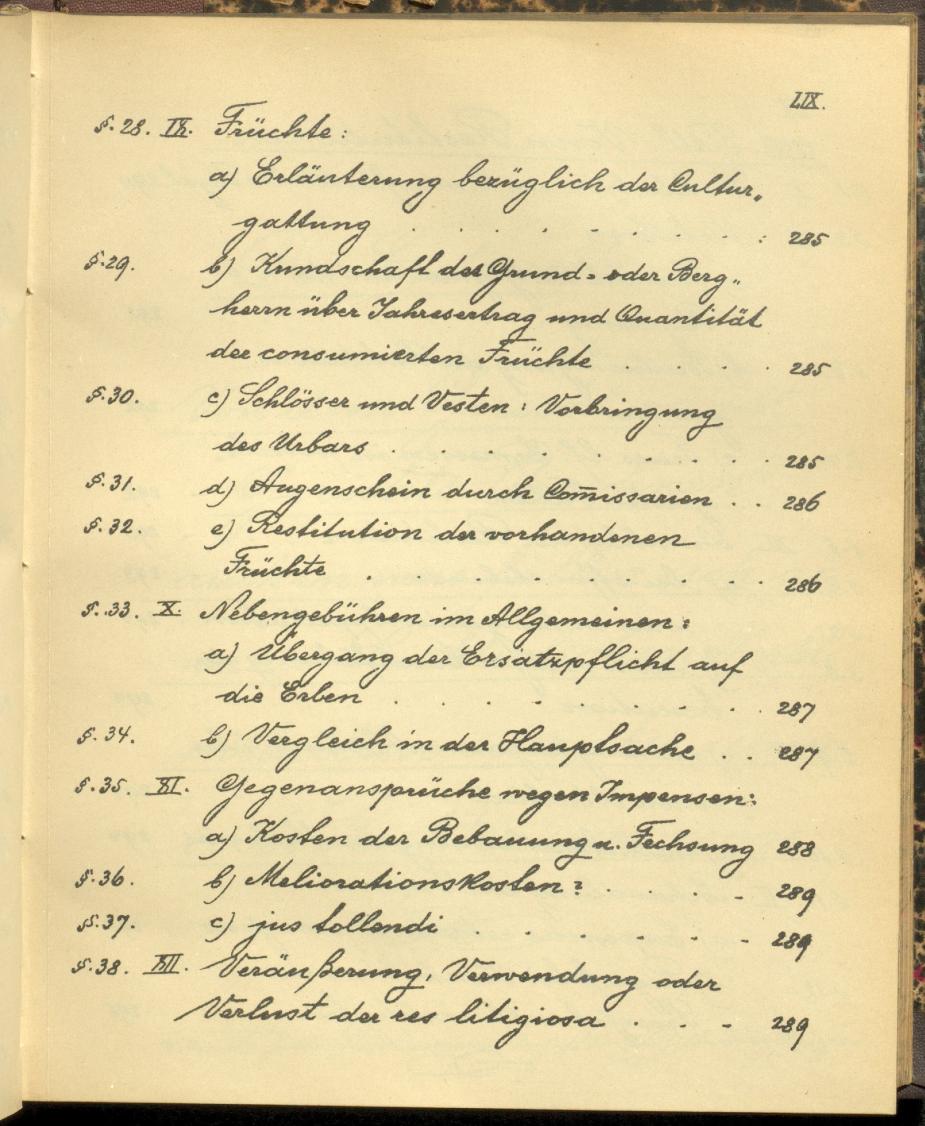 LIX.
§. 28. IX. Früchte:
a) Erläuterung bezüglich der Cultur„
gattung . . . . . . . : 285
§. 29. b) Kundschaft des Grund- oder Berg„
herrn über Jahresertrag und Quantität
der consumierten Früchte . . . . 285
§. 30. c) Schlösser und Vesten: Vorbringung
des Urbars . . . . . . . . 285
§. 31. d) Augenschein durch Com̄issarien . . 286
§. 32. e) Restitution der vorhandenen
Früchte . . . . . . . 286
§. 33. X. Nebengebühren im Allgemeinen:
a) Übergang der Ersatzpflicht auf
die Erben . . . . . . . 287
§. 34. b) Vergleich in der Hauptsache . . 287
§. 35. XI. Gegenansprüche wegen Impensen:
a) Kosten der Bebauung u. Fechsung 288
§. 36. b) Meliorationskosten? . . . . 289
§. 37. c) jus tollendi . . . . . . 289
§. 38. XII. Veräußerung, Verwendung oder
Verlust der res litigiosa . . . 289